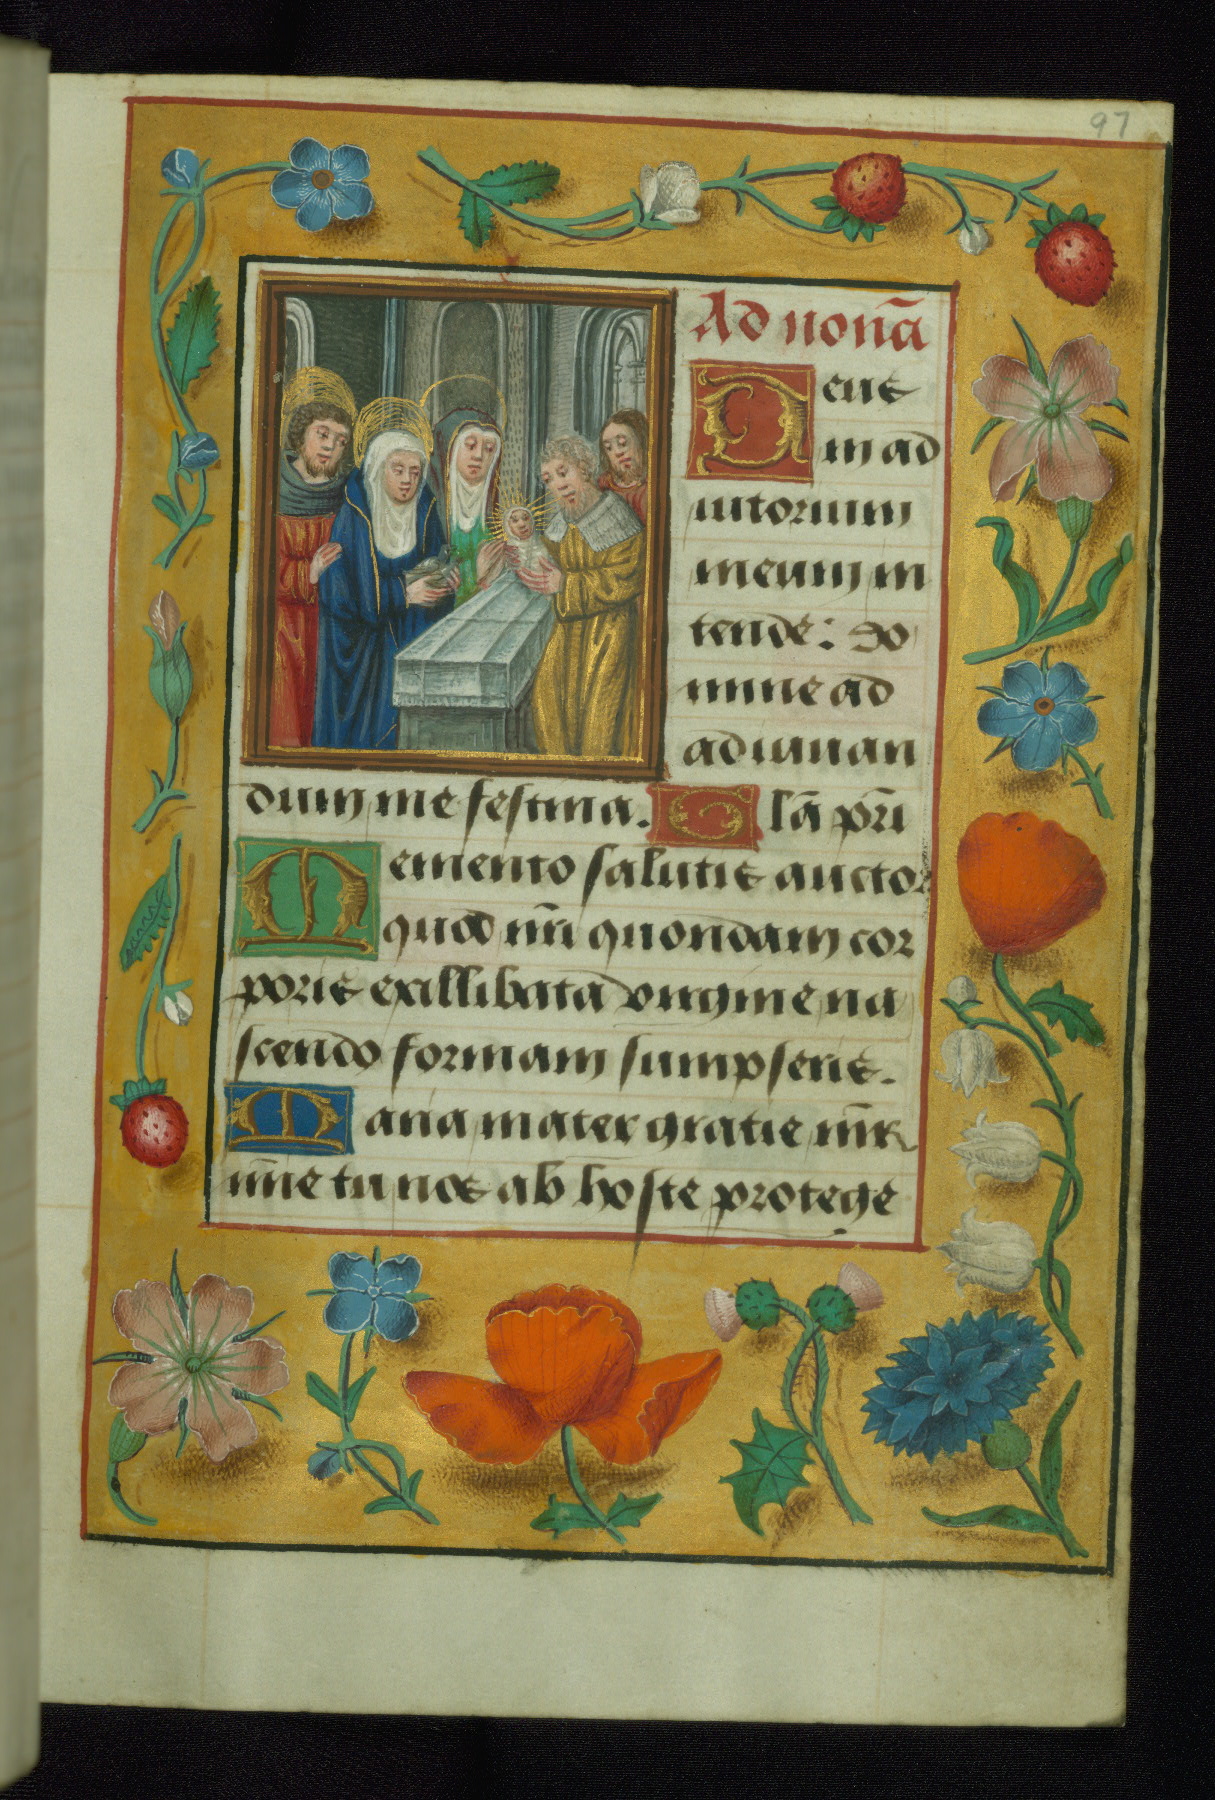 97
Ad nonā
Deus
in ad
iutorium
meum in
tende: Do
mine ad
adiuuan
dum me festina. Glā pr̄i
Memento salutis auctor
quod nr̄i quondam cor
poris ex illibata virgine na
scendo formam sumpseris.
Maria mater gratie mr̄
mīe tu nos ab hoste protege